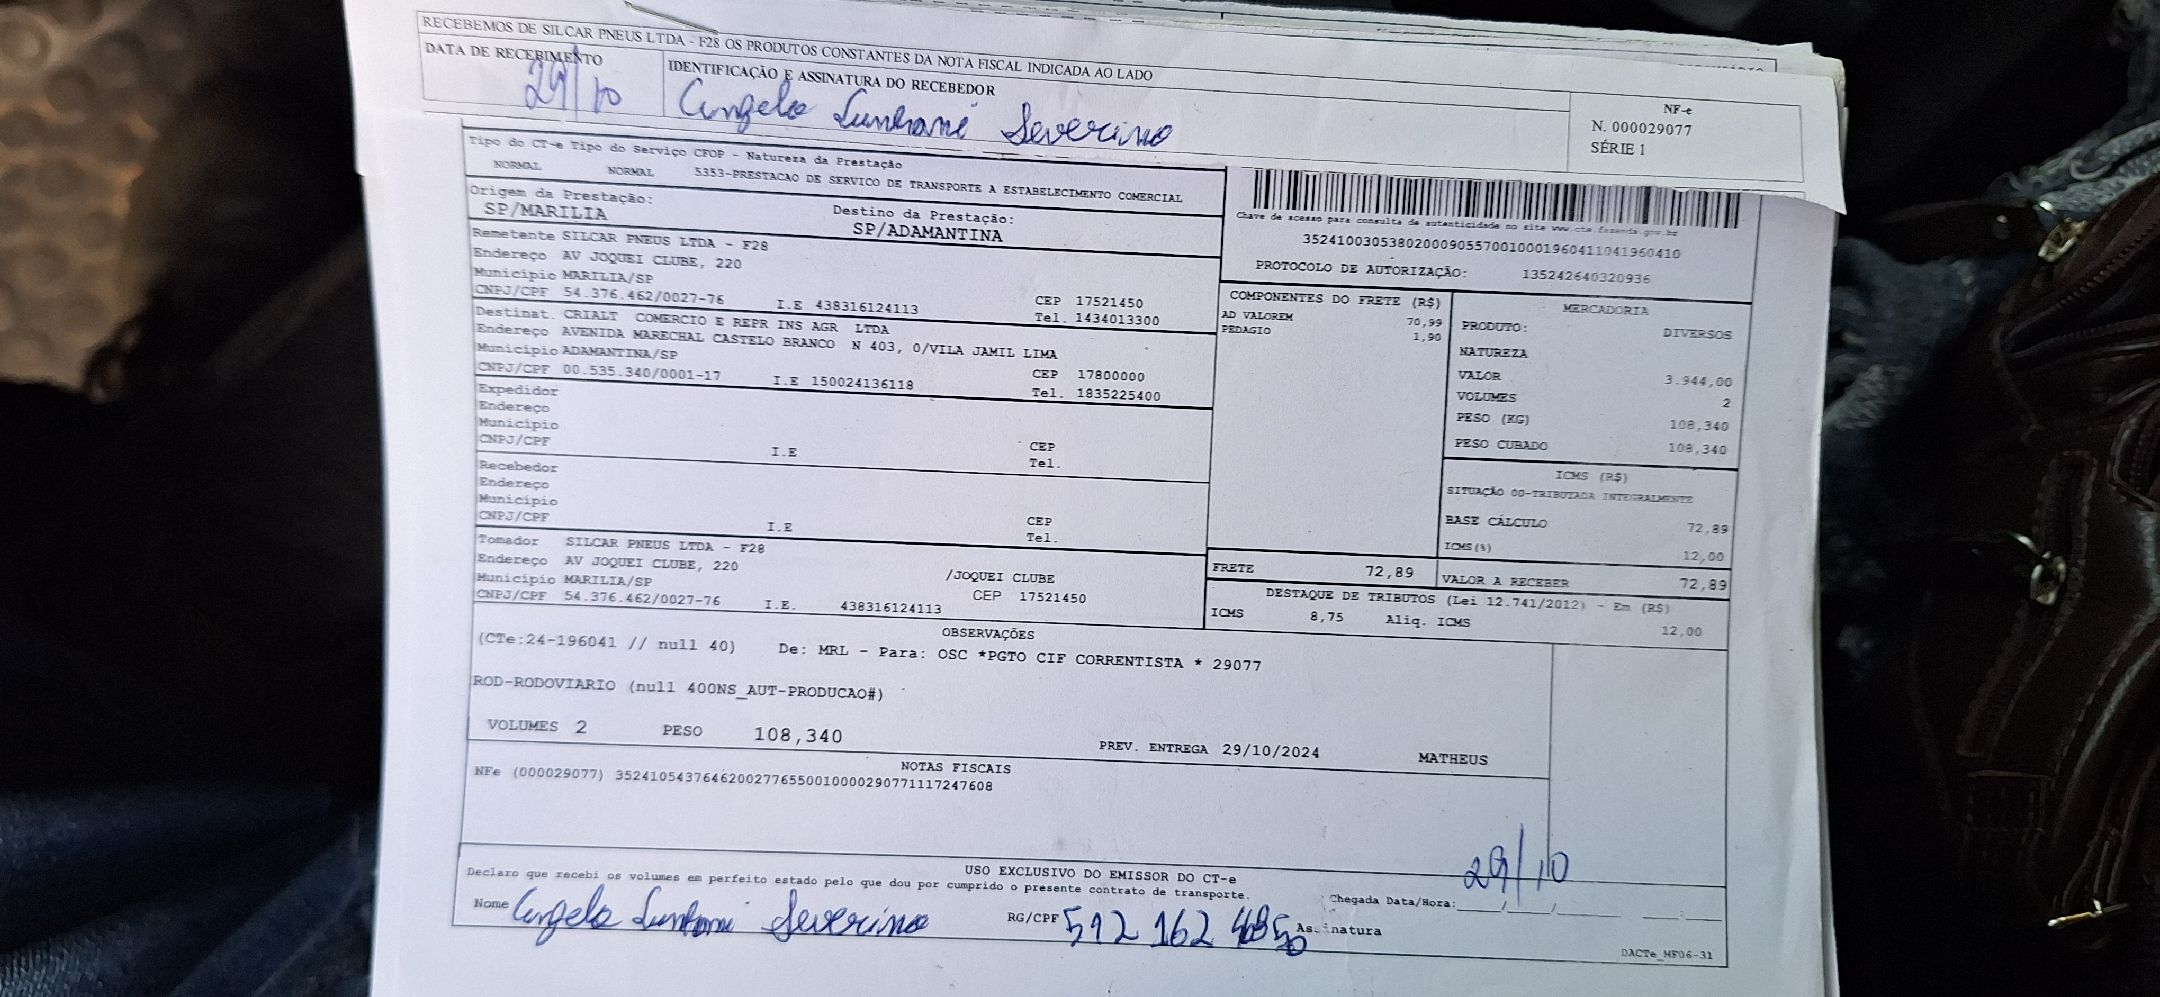 RECEBEMOS DE SILCAR PNEUS LTDA - F28 OS PRODUTOS CONSTANTES DA NOTA FISCAL INDICADA AO LADO
DATA DE RECEBIMENTO
29/10
IDENTIFICAÇÃO E ASSINATURA DO RECEBEDOR
Angelo Severino
NF-e
N. 000029077
SÉRIE 1
Tipo do CT-e Tipo do Serviço CFOP - Natureza da Prestação
NORMAL NORMAL 5353-PRESTACAO DE SERVICO DE TRANSPORTE A ESTABELECIMENTO COMERCIAL
Origem da Prestação: Destino da Prestação:
SP/MARILIA SP/ADAMANTINA
Chave de acesso para consulta de autenticidade no site www.cte.fazenda.gov.br
35241003053802000905570010001960411041960410
PROTOCOLO DE AUTORIZAÇÃO: 135242640320936
Remetente SILCAR PNEUS LTDA - F28
Endereço AV JOQUEI CLUBE, 220
Municipio MARILIA/SP CEP 17521450
CNPJ/CPF 54.376.462/0027-76 I.E 438316124113 Tel. 1434013300
Destinat. CRIALT COMERCIO E REPR INS AGR LTDA
Endereço AVENIDA MARECHAL CASTELO BRANCO N 403, 0/VILA JAMIL LIMA
Municipio ADAMANTINA/SP CEP 17800000
CNPJ/CPF 00.535.340/0001-17 I.E 150024136118 Tel. 1835225400
Expedidor
Endereço
Municipio CEP
CNPJ/CPF I.E Tel.
Recebedor
Endereço
Municipio CEP
CNPJ/CPF I.E Tel.
Tomador SILCAR PNEUS LTDA - F28
Endereço AV JOQUEI CLUBE, 220 /JOQUEI CLUBE
Municipio MARILIA/SP CEP 17521450
CNPJ/CPF 54.376.462/0027-76 I.E. 438316124113
COMPONENTES DO FRETE (R$)
AD VALOREM 70,99
PEDAGIO 1,90
MERCADORIA
PRODUTO: DIVERSOS
NATUREZA
VALOR 3.944,00
VOLUMES 2
PESO (KG) 108,340
PESO CUBADO 108,340
ICMS (R$)
SITUAÇÃO 00-TRIBUTADA INTEGRALMENTE
BASE CÁLCULO 72,89
ICMS(%) 12,00
FRETE 72,89 VALOR A RECEBER 72,89
DESTAQUE DE TRIBUTOS (Lei 12.741/2012) - Em (R$)
ICMS 8,75 Aliq. ICMS 12,00
OBSERVAÇÕES
(CTe:24-196041 // null 40) De: MRL - Para: OSC *PGTO CIF CORRENTISTA * 29077
ROD-RODOVIARIO (null 400NS_AUT-PRODUCAO#)
VOLUMES 2 PESO 108,340 PREV. ENTREGA 29/10/2024 MATHEUS
NOTAS FISCAIS
NFe (000029077) 35241054376462002776550010000290771117247608
USO EXCLUSIVO DO EMISSOR DO CT-e
Declaro que recebi os volumes em perfeito estado pelo que dou por cumprido o presente contrato de transporte.
29/10
Chegada Data/Hora:____/____/______ ____:____
Nome Angelo Severino RG/CPF 512 162 Assinatura
DACTe_MF06-31